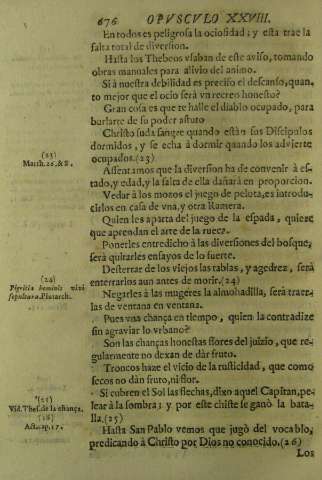 676 OPVSCVLO XXVIII.
En todos es peligrosa la ociosidad; y esta trae la
falta total de diversion.
Hasta los Thebeos vsaban de este aviso, tomando
obras manuales para alivio del animo.
Si à nuestra debilidad es preciso el descanso, quan-
to mejor que el ocio serà vn recreo honesto?
Gran cosa es que te halle el diablo ocupado, para
burlarte de su poder astuto
Christo suda sangre quando estàn sus Discipulos
dormidos, y se echa à dormir quando los advierte
ocupados.(23)
(23)
Matth. 26. & 8.
Assentamos que la diversion ha de convenir à es-
tado, y edad, y la falta de ella dañarà en proporcion.
Vedar à los mozos el juego de pelota, es introdu-
cirlos en casa de vna, y otra Ramera.
Quien les aparta del juego de la espada, quiere
que aprendan el arte de la rueca.
Ponerles entredicho à las diversiones del bosque,
serà quitarles ensayos de lo fuerte.
Desterrar de los viejos las tablas, y agedrez, serà
enterrarlos aun antes de morir.(24)
(24)
Pigritia hominis vivi
sepultura. Plutarch.
Negarles à las mugeres la almohadilla, serà traer-
las de ventana en ventana.
Pues vna chança en tiempo, quien la contradize
sin agraviar lo vrbano?
Son las chanças honestas flores del juizio, que re-
gularmente no dexan de dàr fruto.
Troncos haze el vicio de la rusticidad, que como
secos no dàn fruto, ni flor.
Si cubren el Sol las flechas, dixo aquel Capitan, pe-
lear à la sombra; y por este chiste se ganò la bata-
lla.(25)
(25)
Vid. Thes. de la chança.
(26)
Act. ap. 17.
Hasta San Pablo vemos que jugò del vocablo,
predicando à Christo por Dios no conocido.(26)
Los